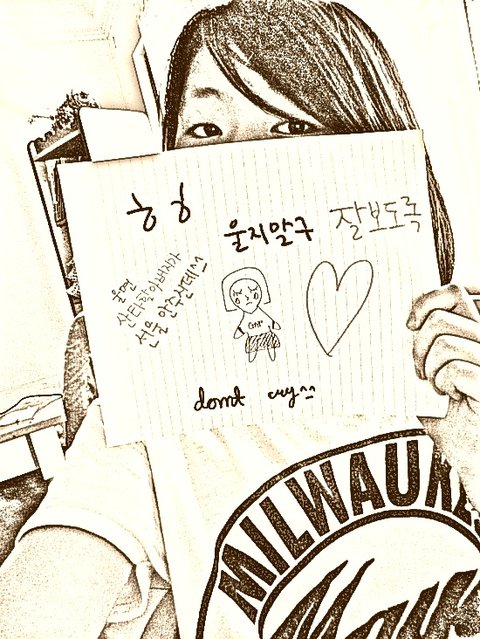 ㅎㅎ
울지말구
잘보도록
울면
산타할아버지가
선물 안주신데^^
GAP
domt cry^^
MILWAUKE